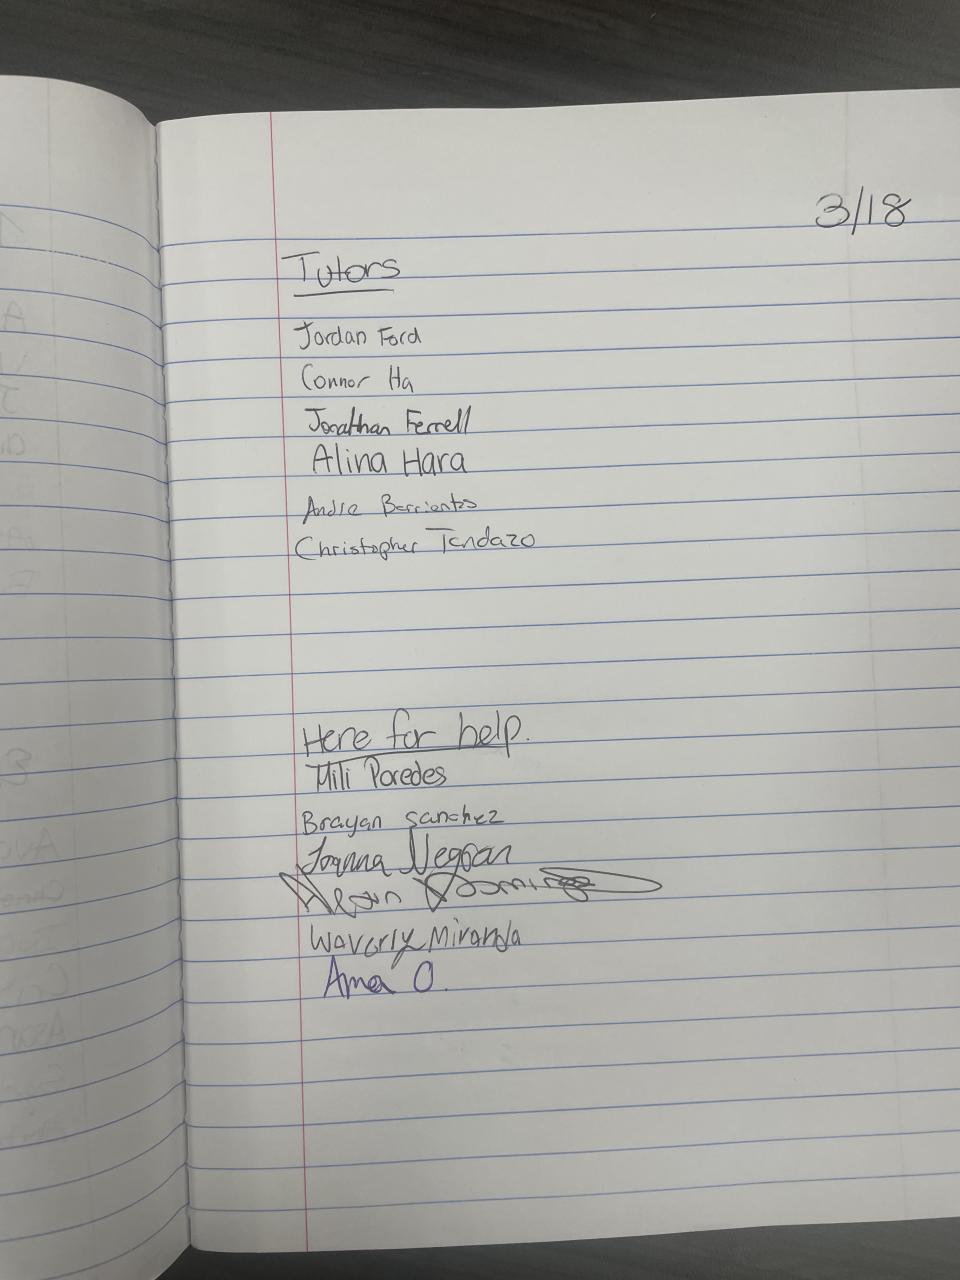 3/18
Tutors
Jordan Ford
Connor Ha
Jonathan Ferrell
Alina Hara
Andre Barrientos
Christopher Tendazo
Here for help.
Mili Paredes
Brayan Sanchez
Joanna Negoan
Waverly Miranda
Ama O.